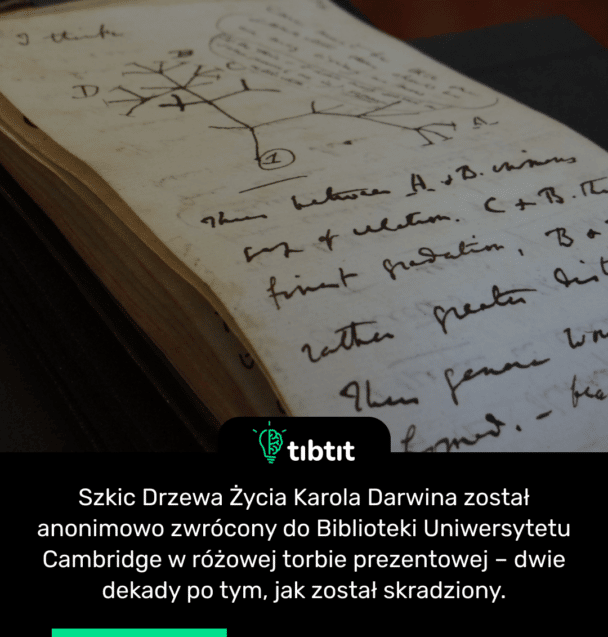 I think
B
D
C
A
1
Then between A & B. immens
gap of relation. C & B. The
finest gradation, B &
rather greater dist
Then genera wou
formed. – bea
tıbtıt
Szkic Drzewa Życia Karola Darwina został
anonimowo zwrócony do Biblioteki Uniwersytetu
Cambridge w różowej torbie prezentowej – dwie
dekady po tym, jak został skradziony.